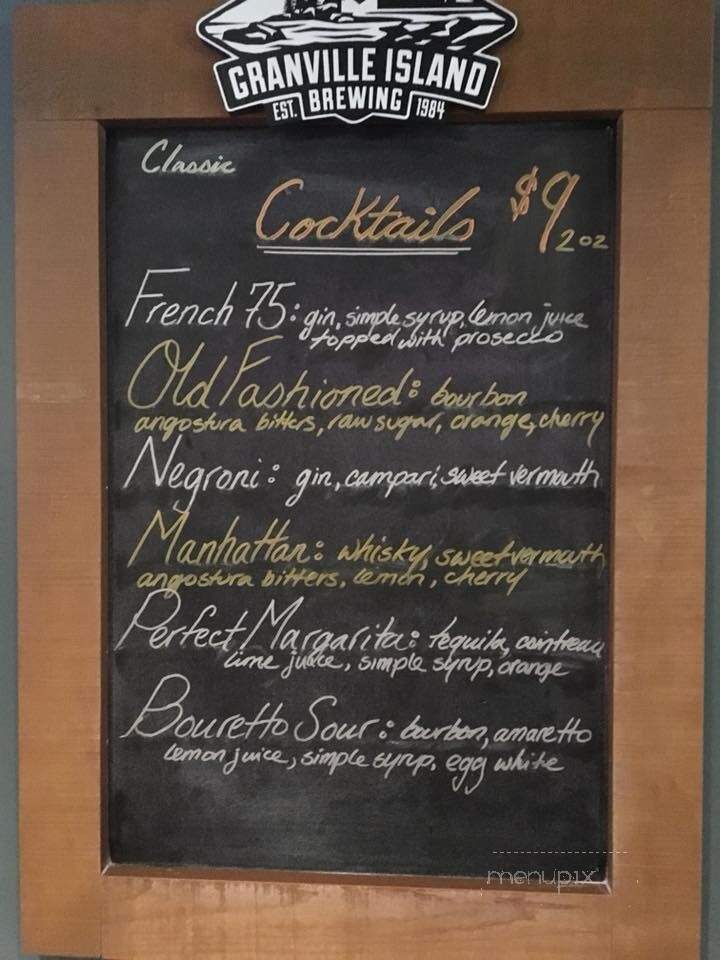 GRANVILLE ISLAND
EST. BREWING 1984
Classic
Cocktails $9
2 oz
French 75: gin, simple syrup, lemon juice
topped with prosecco
Old Fashioned: bourbon
angostura bitters, raw sugar, orange, cherry
Negroni: gin, campari, sweet vermouth
Manhattan: whisky, sweet vermouth
angostura bitters, lemon, cherry
Perfect Margarita: tequila, cointreau
lime juice, simple syrup, orange
Bouretto Sour: bourbon, amaretto
lemon juice, simple syrup, egg white
menupix